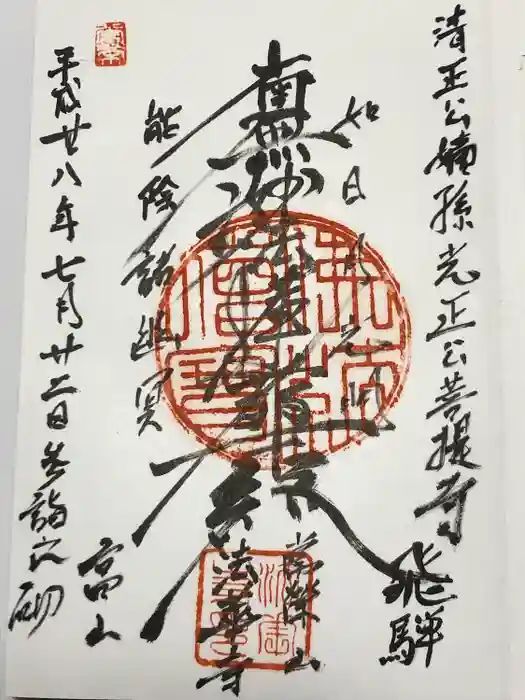 清正公嫡孫光正公菩提寺
飛騨
如日月光明
南無妙法蓮華経
法華寺
能除諸幽冥
高山
平成廿八年七月廿二日参詣之砌